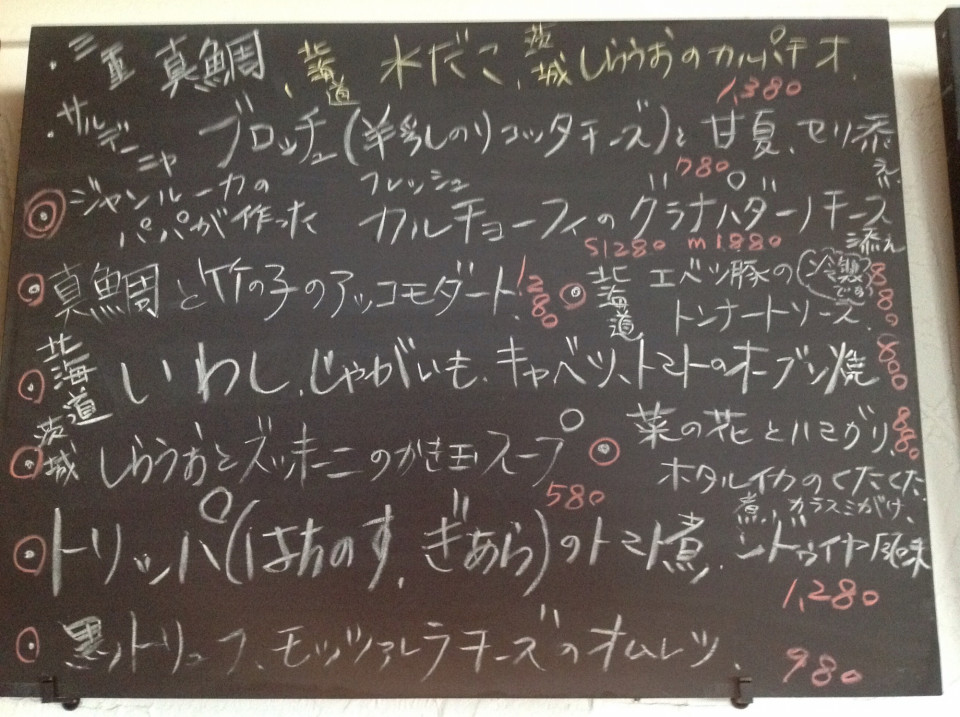 ・三重 真鯛、北海道 水だこ、茨城 しらうおのカルパチオ、
1,380
・サルデーニャ ブロッチュ(羊乳しのリコッタチーズ)と甘夏、セリ添え
780
◎ジャンルーカのパパが作った フレッシュカルチョーフィのグラナパダーノチーズ添え
S1280 m1880
◎真鯛と竹の子のアッコモダート、1,280
◎北海道 エベツ豚のトンナートソース、880
◎北海道 いわし、じゃがいも、キャベツ、トマトのオーブン焼 800
◎茨城 しらうおとズッキーニのかき玉スープ
580
◎菜の花とハマグリ、880
ホタルイカのくたくた煮、カラスミがけ、
◎トリッパ(はちのす、ぎあら)のトマト煮、ンドゥイヤ風味
1,280
◎黒トリュフ、モッツァレラチーズのオムレツ、
980